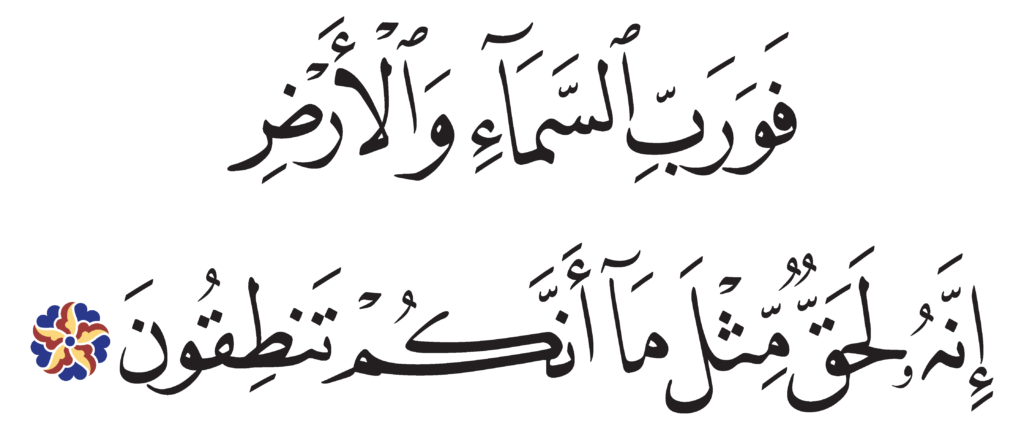 فَوَرَبِّ ٱلسَّمَآءِ وَٱلْأَرْضِ
إِنَّهُۥ لَحَقٌّ مِّثْلَ مَآ أَنَّكُمْ تَنطِقُونَ